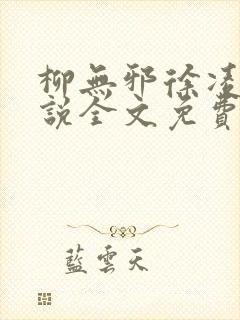 柳無邪徐凌
說全文免費
藍雲天